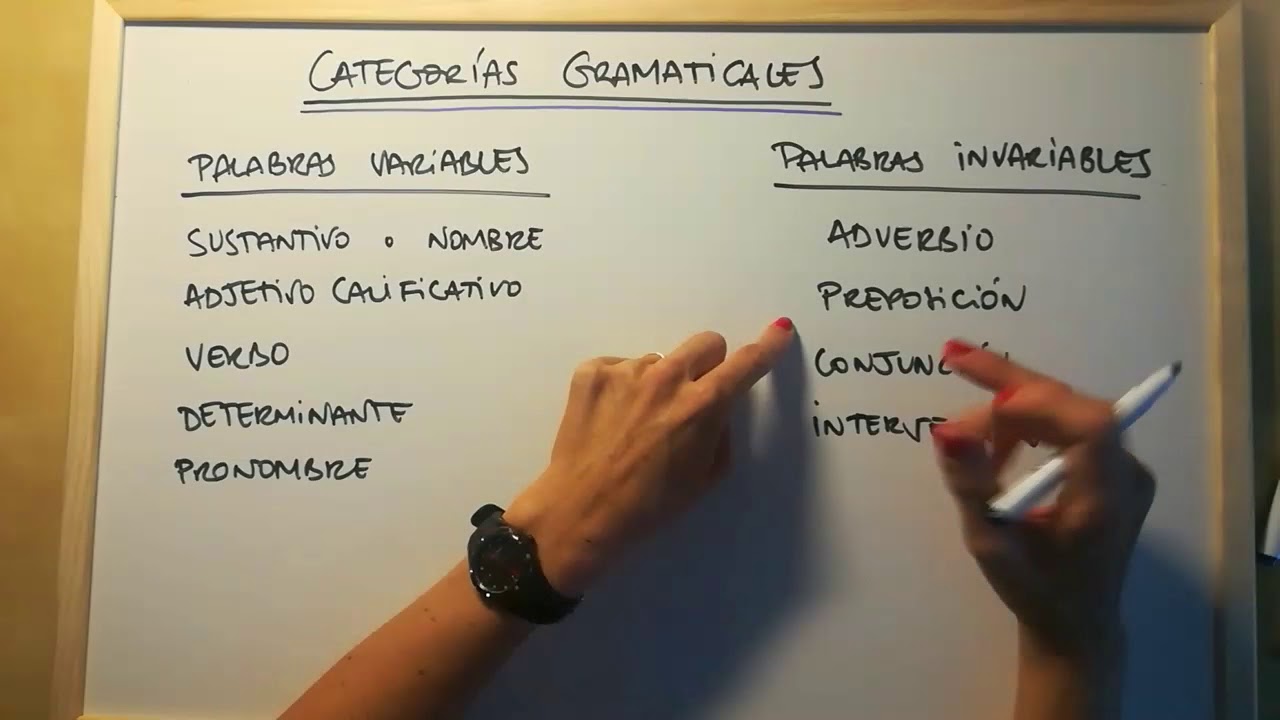 CATEGORÍAS GRAMATICALES
PALABRAS VARIABLES
SUSTANTIVO o NOMBRE
ADJETIVO CALIFICATIVO
VERBO
DETERMINANTE
PRONOMBRE
PALABRAS INVARIABLES
ADVERBIO
PREPOSICIÓN